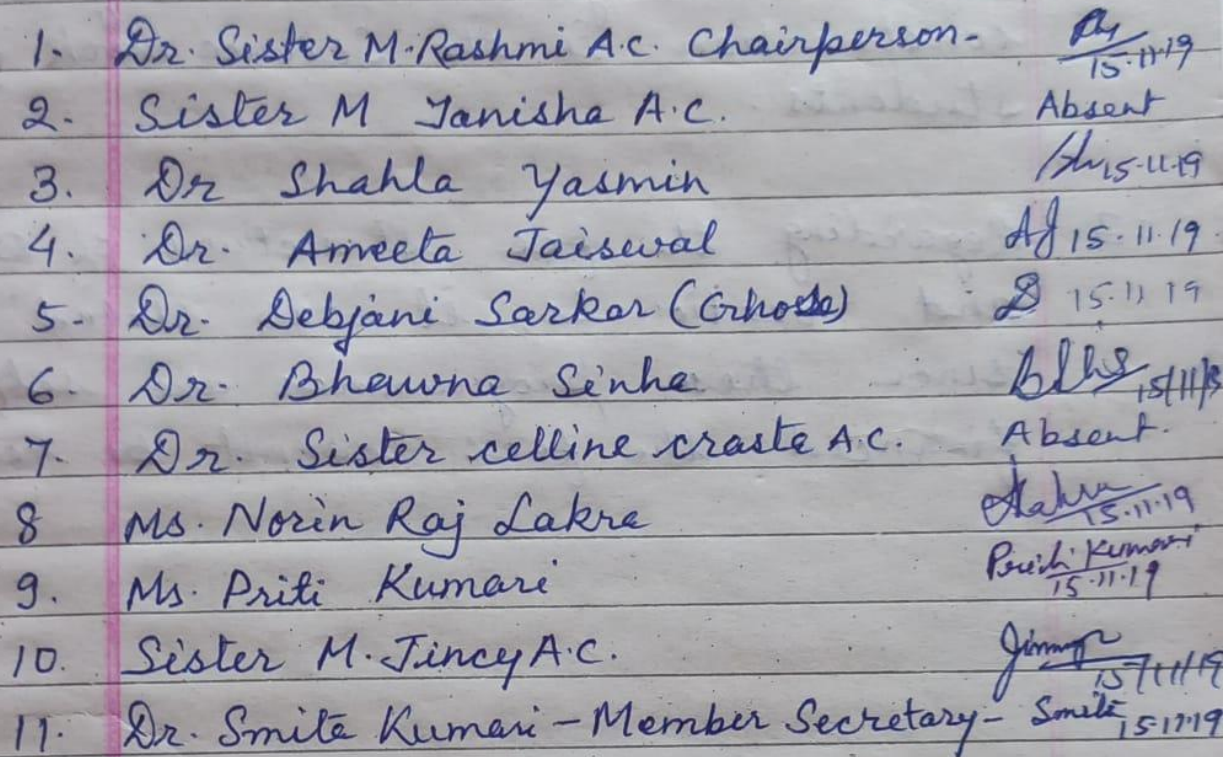 1. Dr. Sister M. Rashmi A.C. Chairperson - 15.11.19
2. Sister M Tanisha A.C. Absent
3. Dr Shahla Yasmin 15.11.19
4. Dr. Ameeta Jaiswal AJ 15.11.19
5. Dr. Debjani Sarkar (Ghose) 15.11 19
6. Dr. Bhawna Sinha 15/11/19
7. Dr. Sister celline crasta A.C. Absent.
8 Ms. Norin Raj Lakra Lakra 15.11.19
9. Ms. Priti Kumari Priti Kumari 15.11.19
10. Sister M. Jincy A.C. 15/11/19
11. Dr. Smita Kumari - Member Secretary - Smita 15.11.19